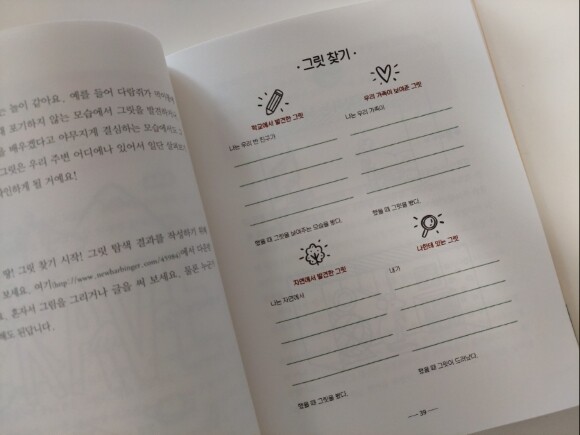 는 놀이 같아요. 예를 들어 다람쥐가
포기하지 않는 모습에서 그릿을 발견하거
배우겠다고 야무지게 결심하는 모습에서도 그
그릿은 우리 주변 어디에나 있어서 일단
인하게 될 거예요!
그릿 찾기 시작! 그릿 탐색 결과를 작성하기 위해
보세요. 여기(http://www.newharbinger.com/45984)에서 다운
혼자서 그림을 그리거나 글을 써 보세요. 물론 누군
해도 된답니다.
· 그릿 찾기 ·
학교에서 발견한 그릿
나는 우리 반 친구가
했을 때 그릿을 보여주는 모습을 봤다.
우리 가족이 보여준 그릿
나는 우리 가족이
했을 때 그릿을 봤다.
자연에서 발견한 그릿
나는 자연에서
했을 때 그릿을 봤다.
나한테 있는 그릿
내가
했을 때 그릿이 드러났다.
— 39 —